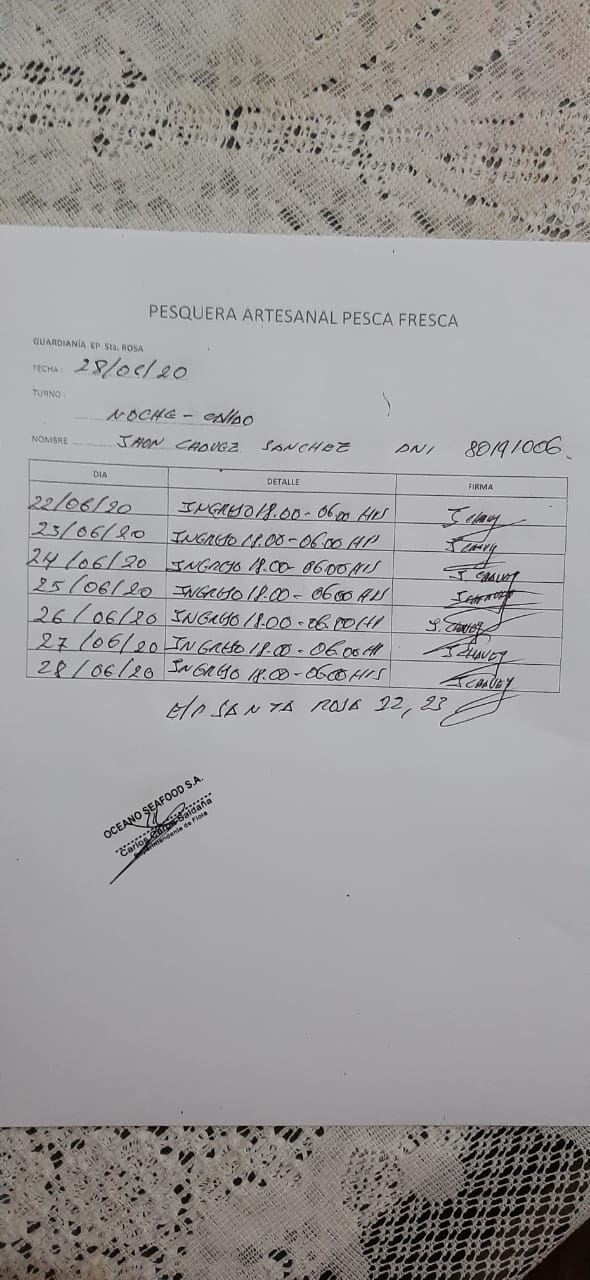 PESQUERA ARTESANAL PESCA FRESCA
GUARDIANÍA EP Sta. ROSA
FECHA: 28/06/20
TURNO:
NOCHE -
NOMBRE JHON CHAVEZ SANCHEZ DNI 80191006.
DIA DETALLE FIRMA
22/06/20 INGRESO 18.00 - 06.00 HRS J Chavez
23/06/20 INGRESO 18.00 - 06.00 HR J Chavez
24/06/20 INGRESO 18.00 - 06.00 HRS J. CHAVEZ
25/06/20 INGRESO 18.00 - 06.00 HRS J CHAVEZ
26/06/20 INGRESO 18.00 - 06.00 HR J. CHAVEZ
27/06/20 INGRESO 18.00 - 06.00 HR J CHAVEZ
28/06/20 INGRESO 18.00 - 06.00 HRS J CHAVEZ
E/P SANTA ROSA 22, 23
OCEANO SEAFOOD S.A.
Carlos Saldaña
Superintendente de Flota